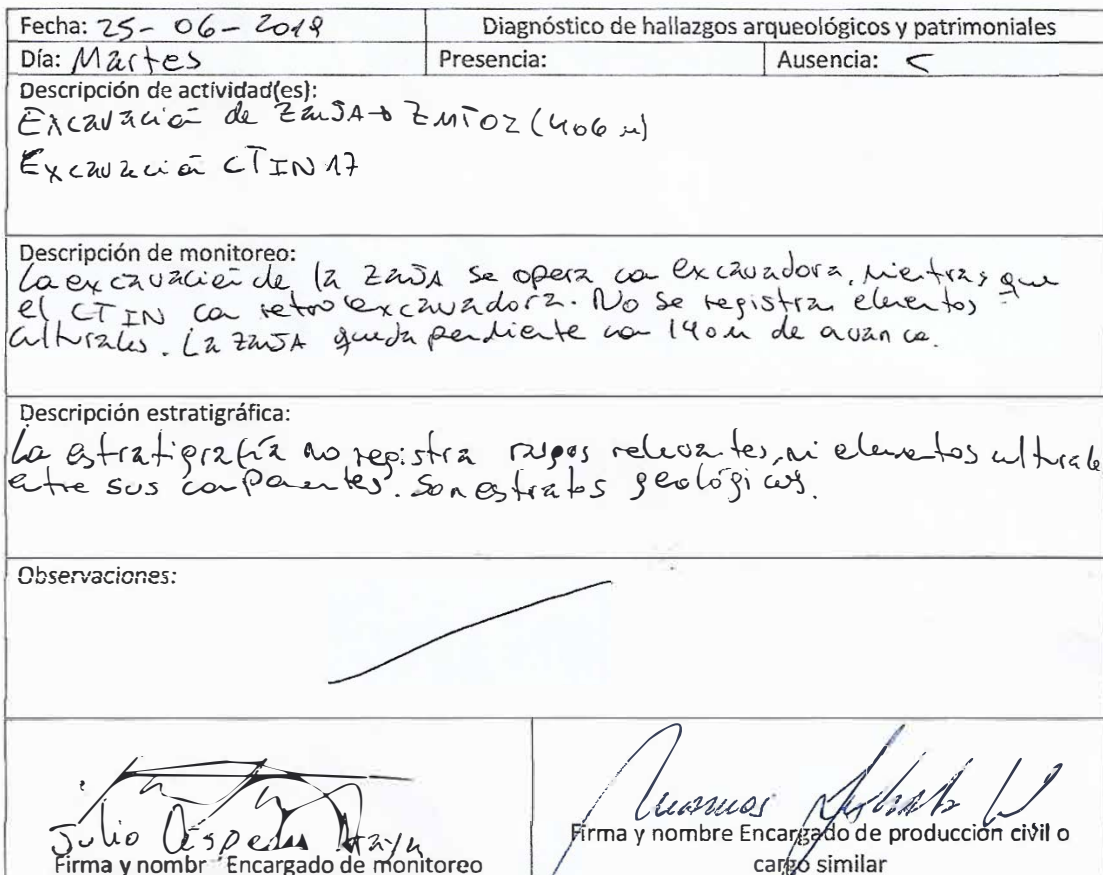 Fecha: 25-06-2019
Diagnóstico de hallazgos arqueológicos y patrimoniales
Día: Martes
Presencia:
Ausencia: <
Descripción de actividad(es):
Excavación de zanJA → ZMT02 (406 m)
Excavación CTIN 17
Descripción de monitoreo:
La excavación de la zanJA se opera con excavadora, mientras que
el CTIN con retroexcavadora. No se registran elementos
culturales. La zanJA queda pendiente con 140 m de avance.
Descripción estratigráfica:
La estratigrafía no registra rasgos relevantes, ni elementos culturale
entre sus componentes. Son estratos geológicos.
Observaciones:
Julio Céspedes Araya
Firma y nombr Encargado de monitoreo
Firma y nombre Encargado de producción civil o
cargo similar